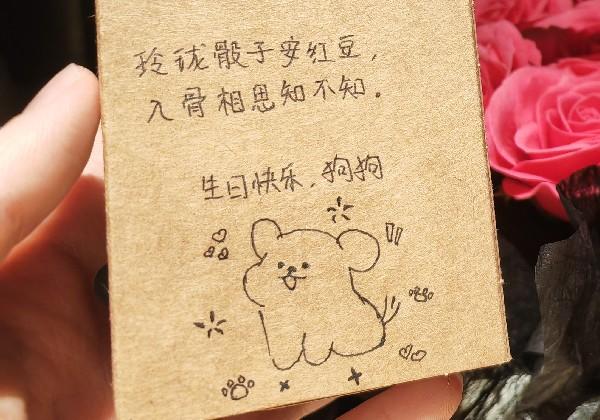 玲珑骰子安红豆，
入骨相思知不知。
生日快乐，狗狗